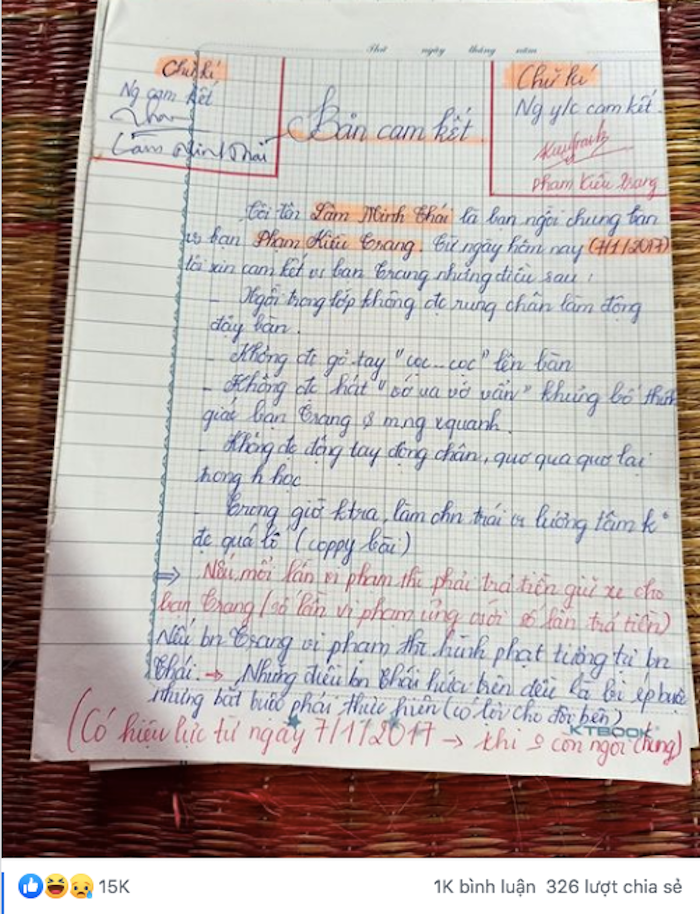 Thứ ngày tháng năm
Chữ kí
Ng cam kết
Thái
Lâm Minh Thái
Bản cam kết
Chữ kí
Ng y/c cam kết.
Phạm Kiều Trang
Tôi tên Lâm Minh Thái là bạn ngồi chung bàn
vs bạn Phạm Kiều Trang. Từ ngày hôm nay (7/1/2017)
tôi xin cam kết vs bạn Trang những điều sau:
- Ngồi trong lớp không đc rung chân làm động
đậy bàn.
- Không đc gõ tay "cọc...cọc" lên bàn
- Không đc hát "vớ va vớ vẩn" khủng bố thính
giác bạn Trang & mng xquanh.
- Không đc động tay động chân, quơ qua quơ lại
trong h học
- Trong giờ ktra, làm chn trái vs lương tâm k
đc quá lố (coppy bài)
=> Nếu mỗi lần vi phạm thì phải trả tiền gửi xe cho
bạn Trang (số lần vi phạm ứng với số lần trả tiền)
Nếu bn Trang vi phạm thì hình phạt tương tự bn
Thái. → Những điều bn Thái hứa trên đều là lời ép buộc
nhưng bắt buộc phải thực hiện (có lời cho đôi bên)
KTBOOK
(Có hiệu lực từ ngày 7/1/2017 → khi 2 còn ngồi chung)
15K 1K bình luận 326 lượt chia sẻ